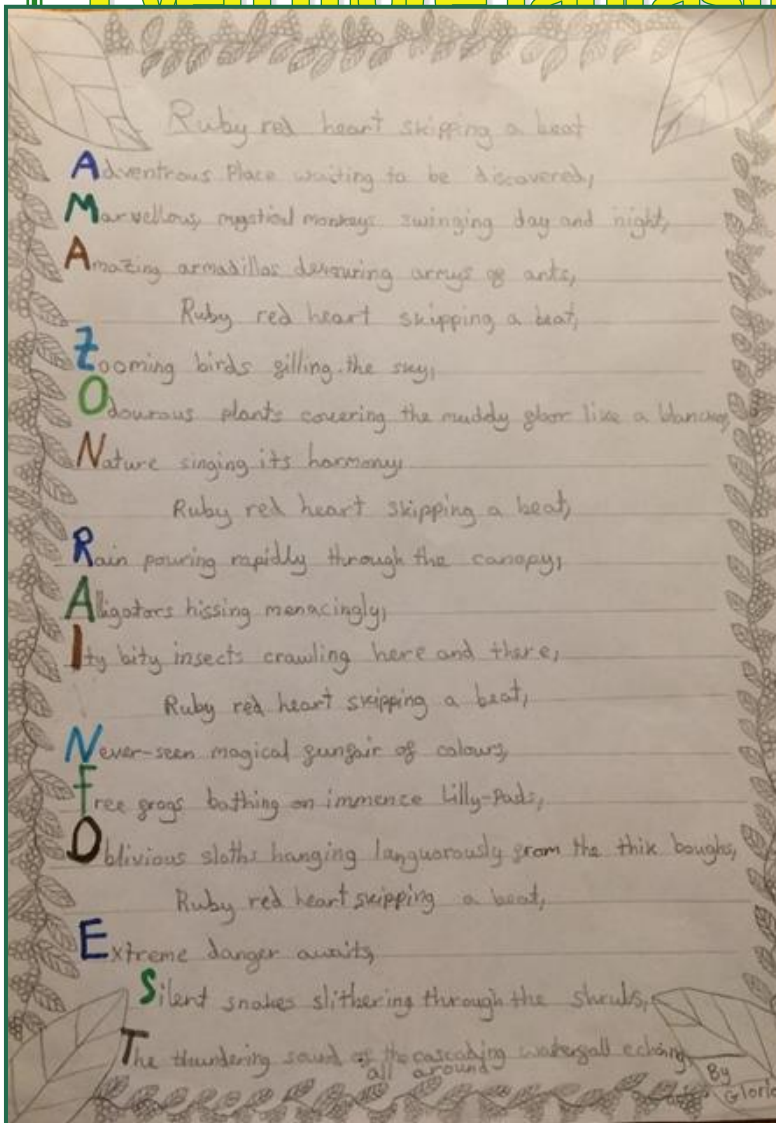 Ruby red heart skipping a beat
Adventrous Place waiting to be discovered,
Marvellous, mystical monkeys swinging day and night,
Amazing armadillos devouring arrys of ants,
Ruby red heart skipping a beat,
Zooming birds filling the sky,
Odourous plants covering the muddy floor like a
Nature singing its harmony,
Ruby red heart skipping a beat,
Rain pouring rapidly through the canopy,
Alligators hissing menacingly,
Ity bity insects crawling here and there,
Ruby red heart skipping a beat,
Never-seen magical funfair of colours,
Free frogs bathing on immence Lilly-Pads,
Oblivious sloths hanging languorously from the thik boughs,
Ruby red heart skipping a beat,
Extreme danger awaits,
Silent snakes slithering through the shrubs,
The thundering sound of the cascading waterfall echoing
all around
By
Gloria